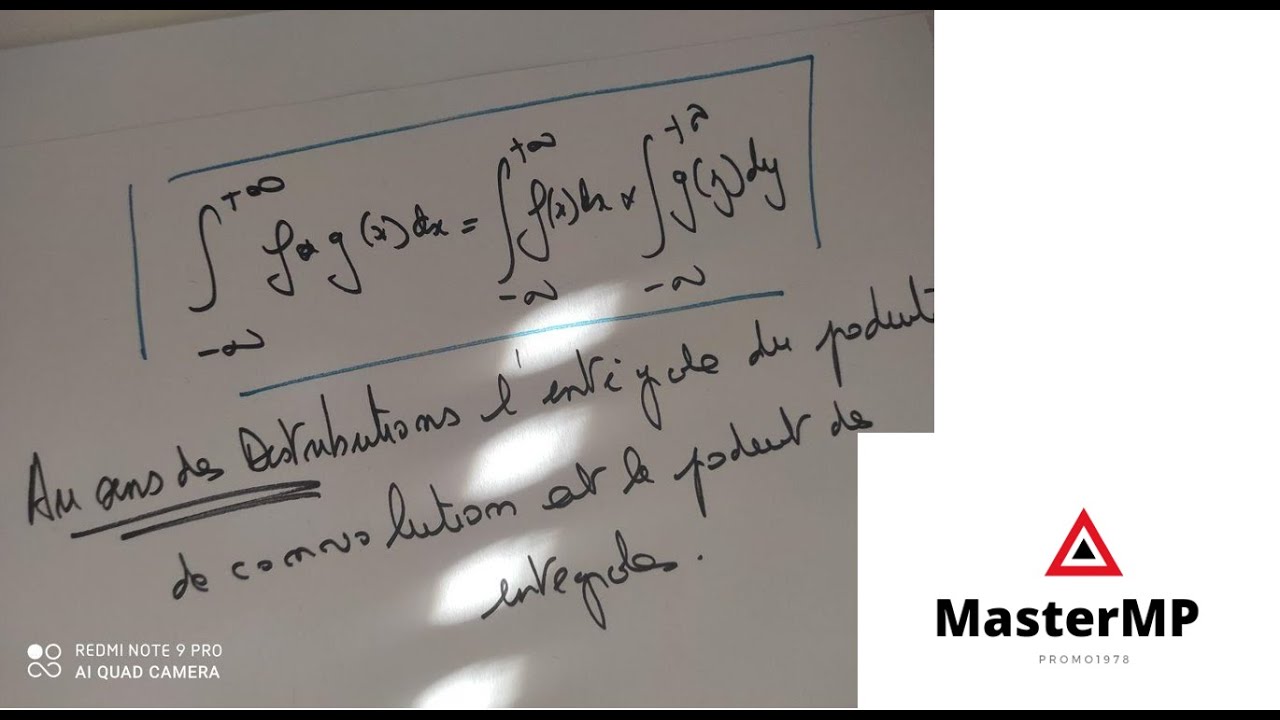 ∫_{-∞}^{+∞} f * g(x) dx = ∫_{-∞}^{+∞} f(x) dx × ∫_{-∞}^{+∞} g(y) dy
Au sens des Distributions l'intégrale du produit
de convolution est le produit des
intégrales.
REDMI NOTE 9 PRO
AI QUAD CAMERA
MasterMP
PROMO1978